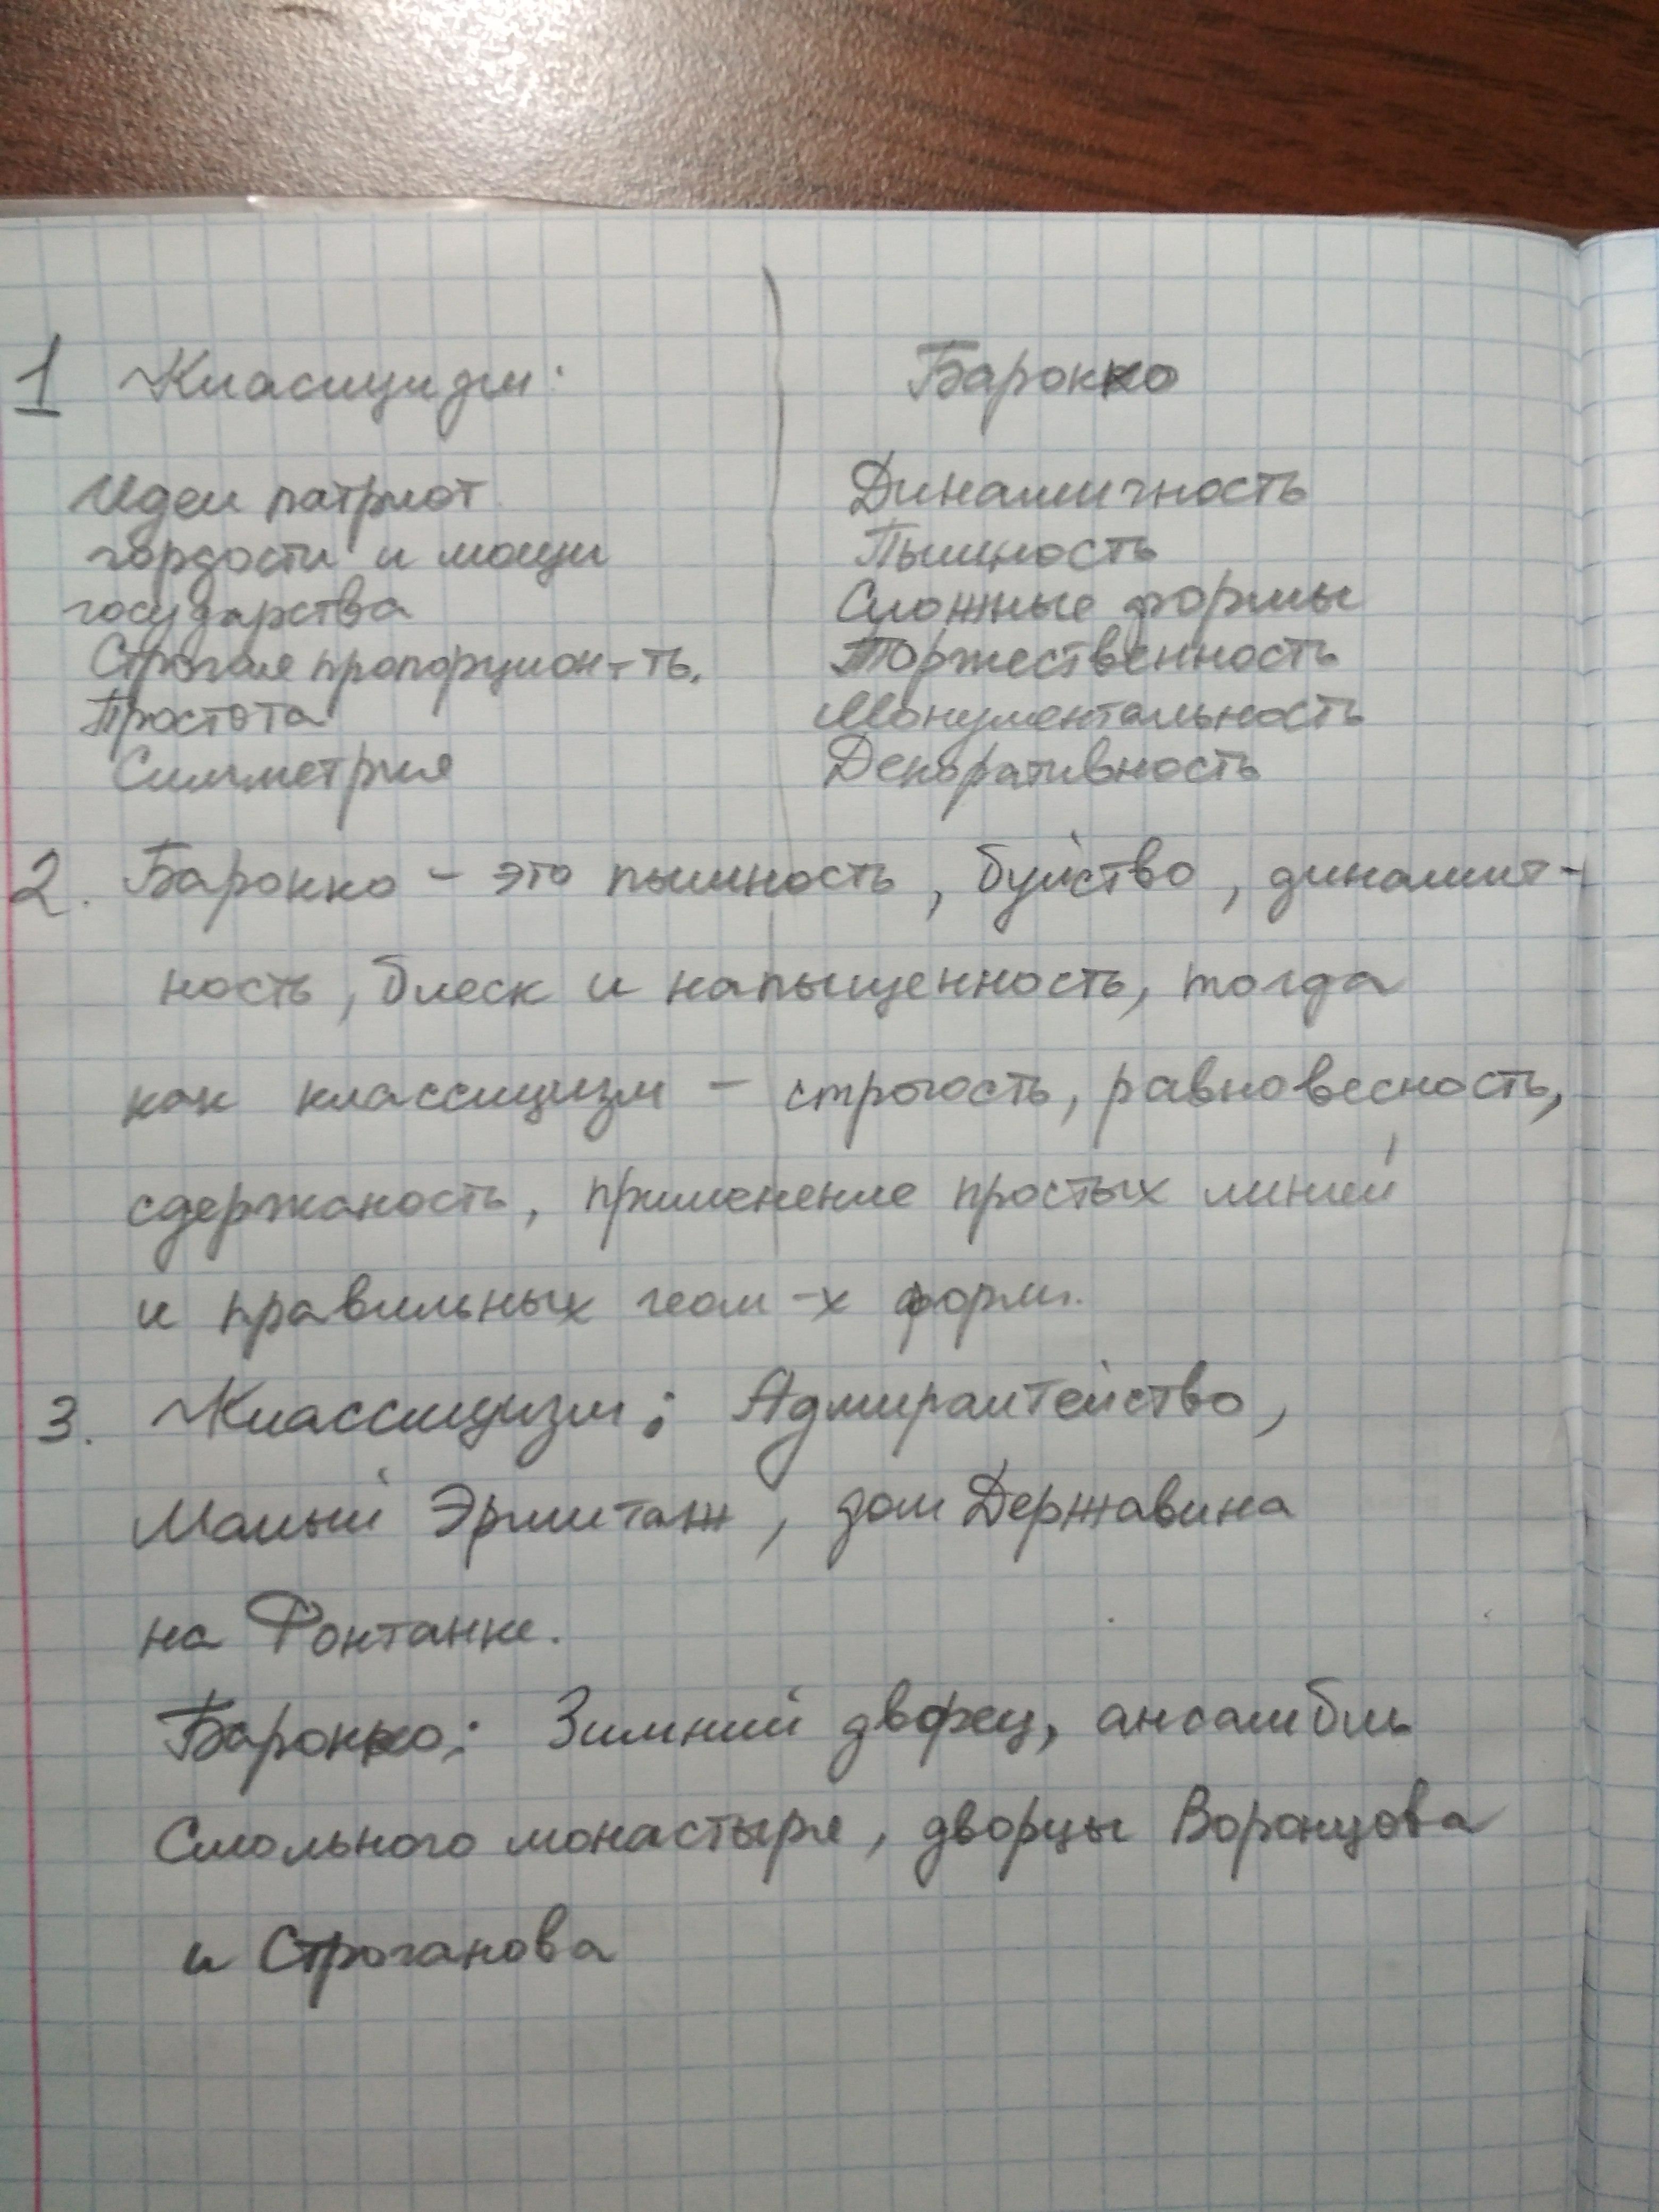 1 Класицизм: Барокко
Идеи патриот Динамичность
гордости и мощи Пышность
государства Сложные формы
Строгая пропорцион-ть. Торжественность
Простота Монументальность
Симметрия Декоративность
2. Барокко - это пышность, буйство, динамич-
ность, блеск и напыщенность, тогда
как классицизм - строгость, равновесность,
сдержаность, применение простых линий
и правильных геом-х форм.
3. Классицизм: Адмиралтейство,
Малый Эрмитаж, дом Державина
на Фонтанке.
Барокко: Зимний дворец, ансамбль
Смольного монастыря, дворцы Воронцова
и Строганова